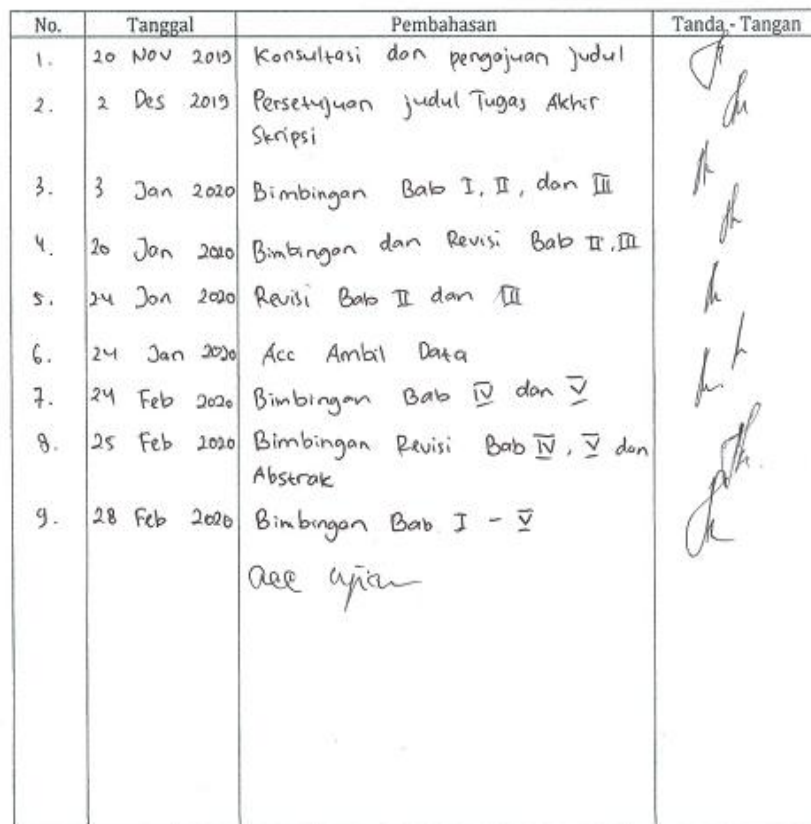 No. Tanggal Pembahasan Tanda - Tangan
1. 20 Nov 2019 Konsultasi dan pengajuan judul
2. 2 Des 2019 Persetujuan judul Tugas Akhir
Skripsi
3. 3 Jan 2020 Bimbingan Bab I, II, dan III
4. 20 Jan 2020 Bimbingan dan Revisi Bab II, III
5. 24 Jan 2020 Revisi Bab II dan III
6. 24 Jan 2020 Acc Ambil Data
7. 24 Feb 2020 Bimbingan Bab IV dan V
8. 25 Feb 2020 Bimbingan Revisi Bab IV, V dan
Abstrak
9. 28 Feb 2020 Bimbingan Bab I - V
acc ujian